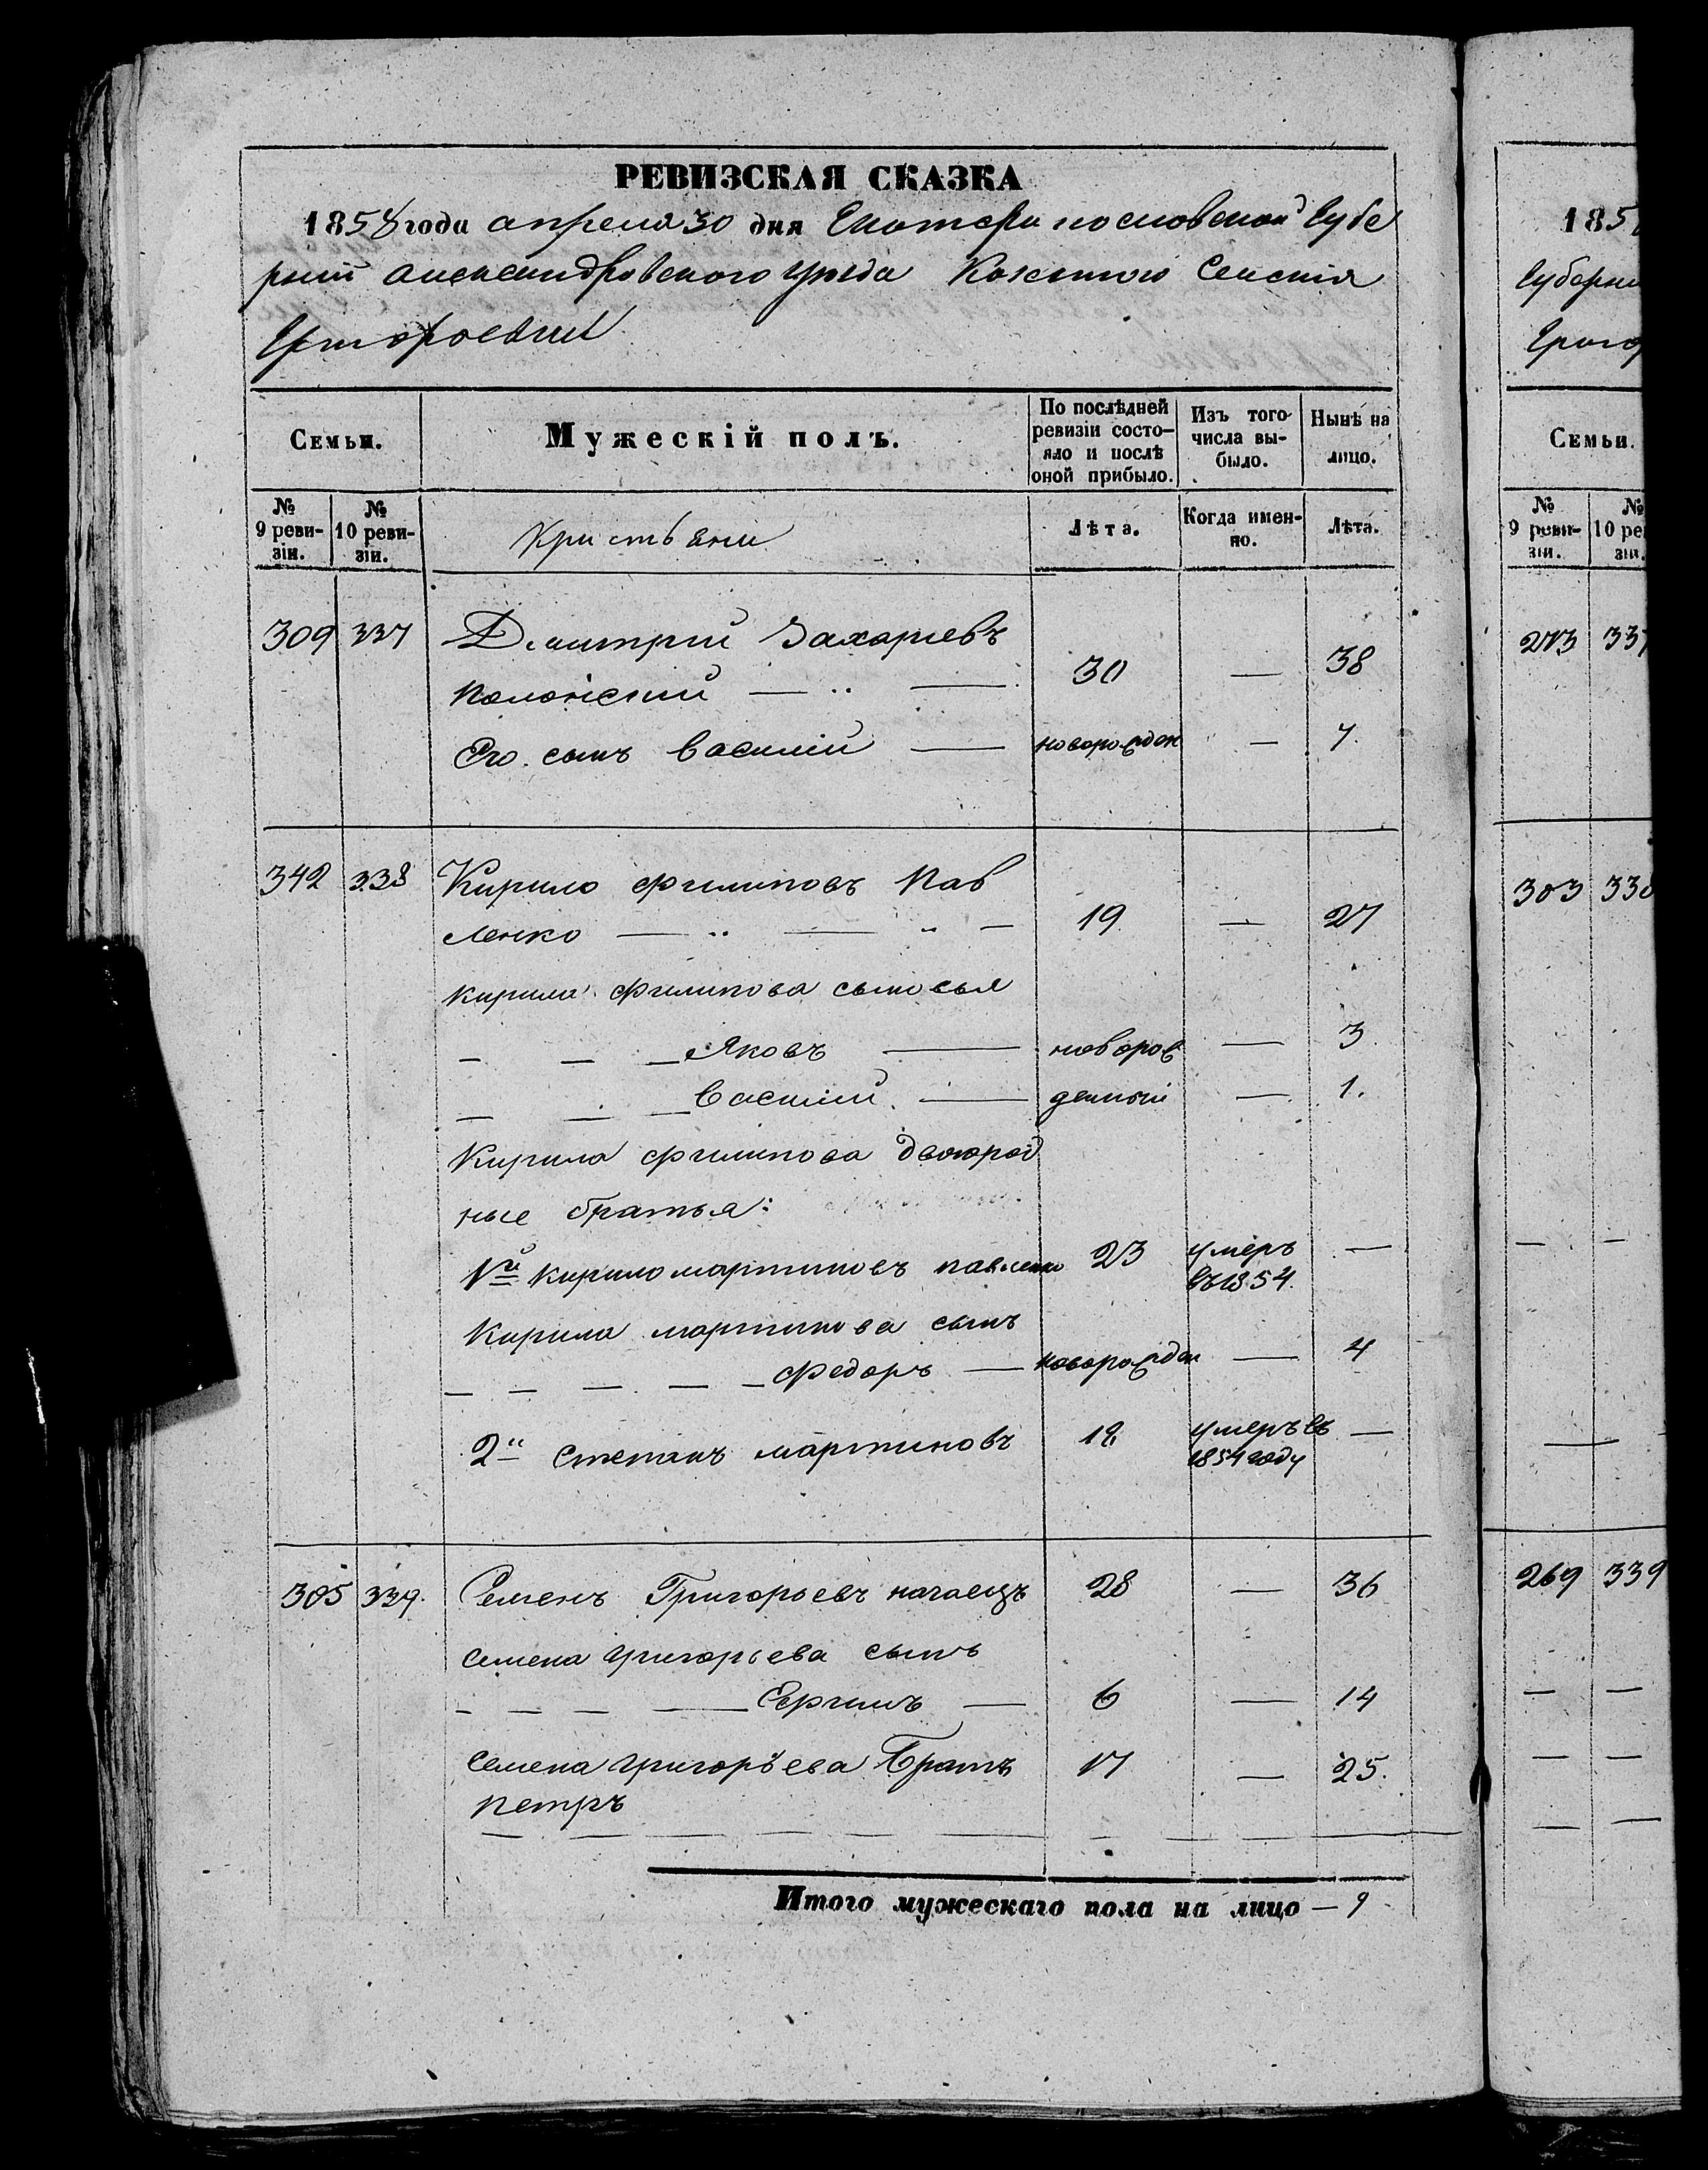 РЕВИЗСКАЯ СКАЗКА
1858 года апреля 30 дня Екатери нославской Губе
рнии Александровского уезда Казенного Селенія
Григорьевки
Семьи.
Мужескій полъ.
По послѣдней ревизіи состо-
яло и послѣ оной прибыло.
Изъ того числа вы-
было.
Нынѣ на лицо.
№ 9 реви-
зіи.
№ 10 реви-
зіи.
Кристьяни
Лѣта.
Когда имен-
но.
Лѣта.
309 337 Дмитрий Захариевъ
Полонский — 30 — 38
Его сынъ Василий — новорожден — 7.
342 338 Кирило Филиповъ Пав
ленко — 19 — 27
Кирила Филипова сыновья
Яковъ — новорож — 3
Василий — денныи — 1.
Кирила Филипова двоюрод
ные братья:
1й Кирило Мартиновъ Павленко 23 умеръ въ 1854. —
Кирила Мартинова сынъ
Федоръ — новорожден — 4
2й Степанъ Мартиновъ 12 умеръ въ 1854 году —
305 339. Семенъ Григорьевъ 28 — 36
Семена Григорьева сынъ
— 6 — 14
Семена Григорьева Братъ 17 — 25.
Петръ
Итого мужескаго пола на лицо — 9
185
Губерни
Григо
Семьи.
№ 9 реви-
зіи.
№ 10 ре
зіи.
273 337
303 338
269 339